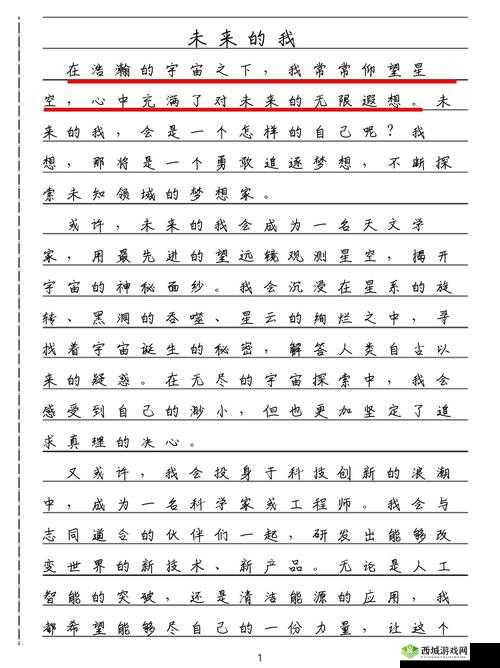 未来的我
在浩瀚的宇宙之下，我常常仰望星
空，心中充满了对未来的无限遐想。未
来的我，会是一个怎样的自己呢？我
想，那将是一个勇敢追逐梦想，不断探
索未知领域的梦想家。
或许，未来的我会成为一名天文学
家，用最先进的望远镜观测星空，揭开
宇宙的神秘面纱。我会沉浸在星系的旋
转、黑洞的吞噬、星云的绚烂之中，寻
找着宇宙诞生的秘密，解答人类自古以
来的疑惑。在无尽的宇宙探索中，我会
感受到自己的渺小，但也更加坚定了追
求真理的决心。
又或许，我会投身于科技创新的浪潮
中，成为一名科学家或工程师。我会与
志同道合的伙伴们一起，研发出能够改
变世界的新技术、新产品。无论是人工
智能的突破，还是清洁能源的应用，我
都希望能够尽自己的一份力量，让这个
1
西城游戏网